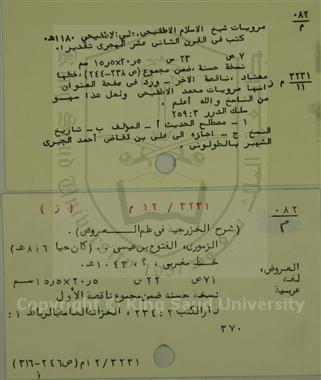 ٠٨٢
م
مرويات شيخ الاسلام الاطفيحي، لي الاطفيحي ١١٨٠هـ.
كتب فى القرن الثانى عشر الهجرى تقديرا.
٧ ص ٢٣ س ٢٠٫٥×١٥٫٥ سم
نسخة حسنة ،ضمن مجموع (ص ٢٣٨-٢٤٤)، خطها
معتاد ،ناقصة الآخر - ورد فى صفحة العنوان
٣٢٣١
١١ م ز
انها مرويات محمد الاطفيحي ولعل هذا سهو
من الناسخ والله أعلم .
سلك الدرر ٣:٢٥٩
١ - مصطلح الحديث أ - المؤلف ب - تاريخ
النسخ ج - اجازه الى على بن لقانى أحمد الجيرى
الشهير بالطولونى .
٣٢٣١ / ١٢ م (ز)
٠٨٢
م
(شرح الخزرجية فى علم العروض).
الزمورى، الفتوح بن عيسى .. (كان حيا ٨١٦ هـ)
خط مغربى ، ؟، ١٠٤٣هـ.
٧١ ص ٢٢ س ٢٠٫٥×١٥٫٥ سم
نسخة حسنة ضمن مجموع ناقصة الأول
دار الكتب ٢: ٢٣٤، الخزانة العامة بالرباط ١:
٣٧٠
العروض،
لغة
عربية
٣٢٣١/١٢م (ص٢٤٦-٣١٦)
ز
Copyright © King Saud University